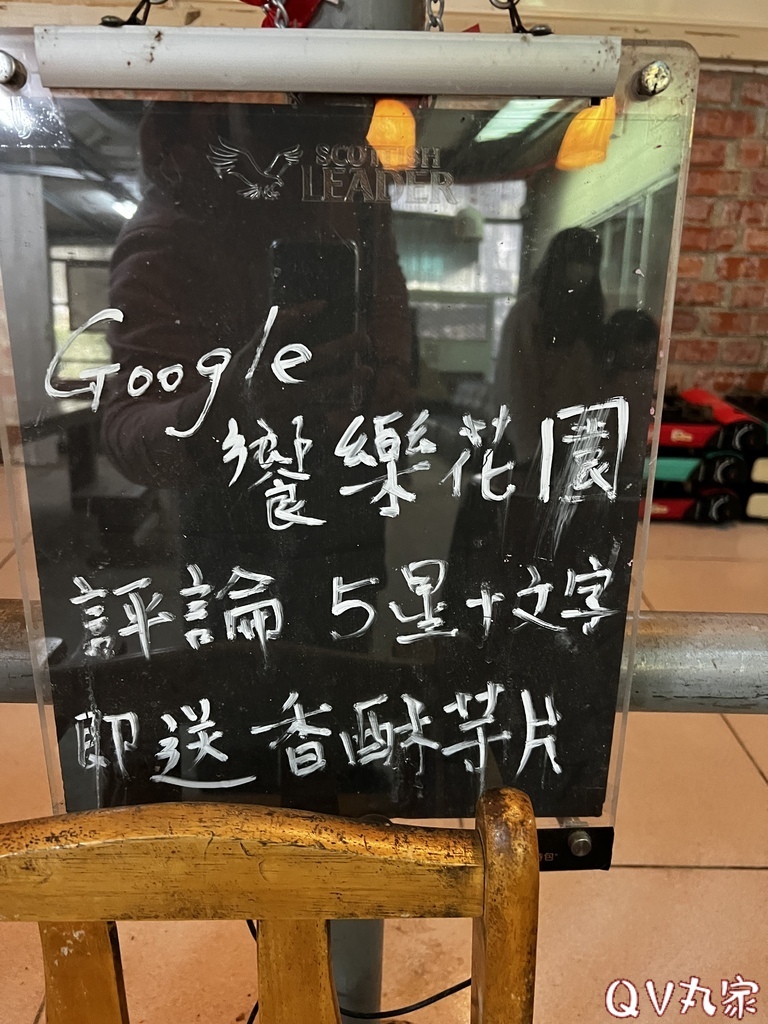 SCOTTISH
LEADER
Google
饗樂花園
評論 5星+文字
即送 香酥芋片
QV丸家